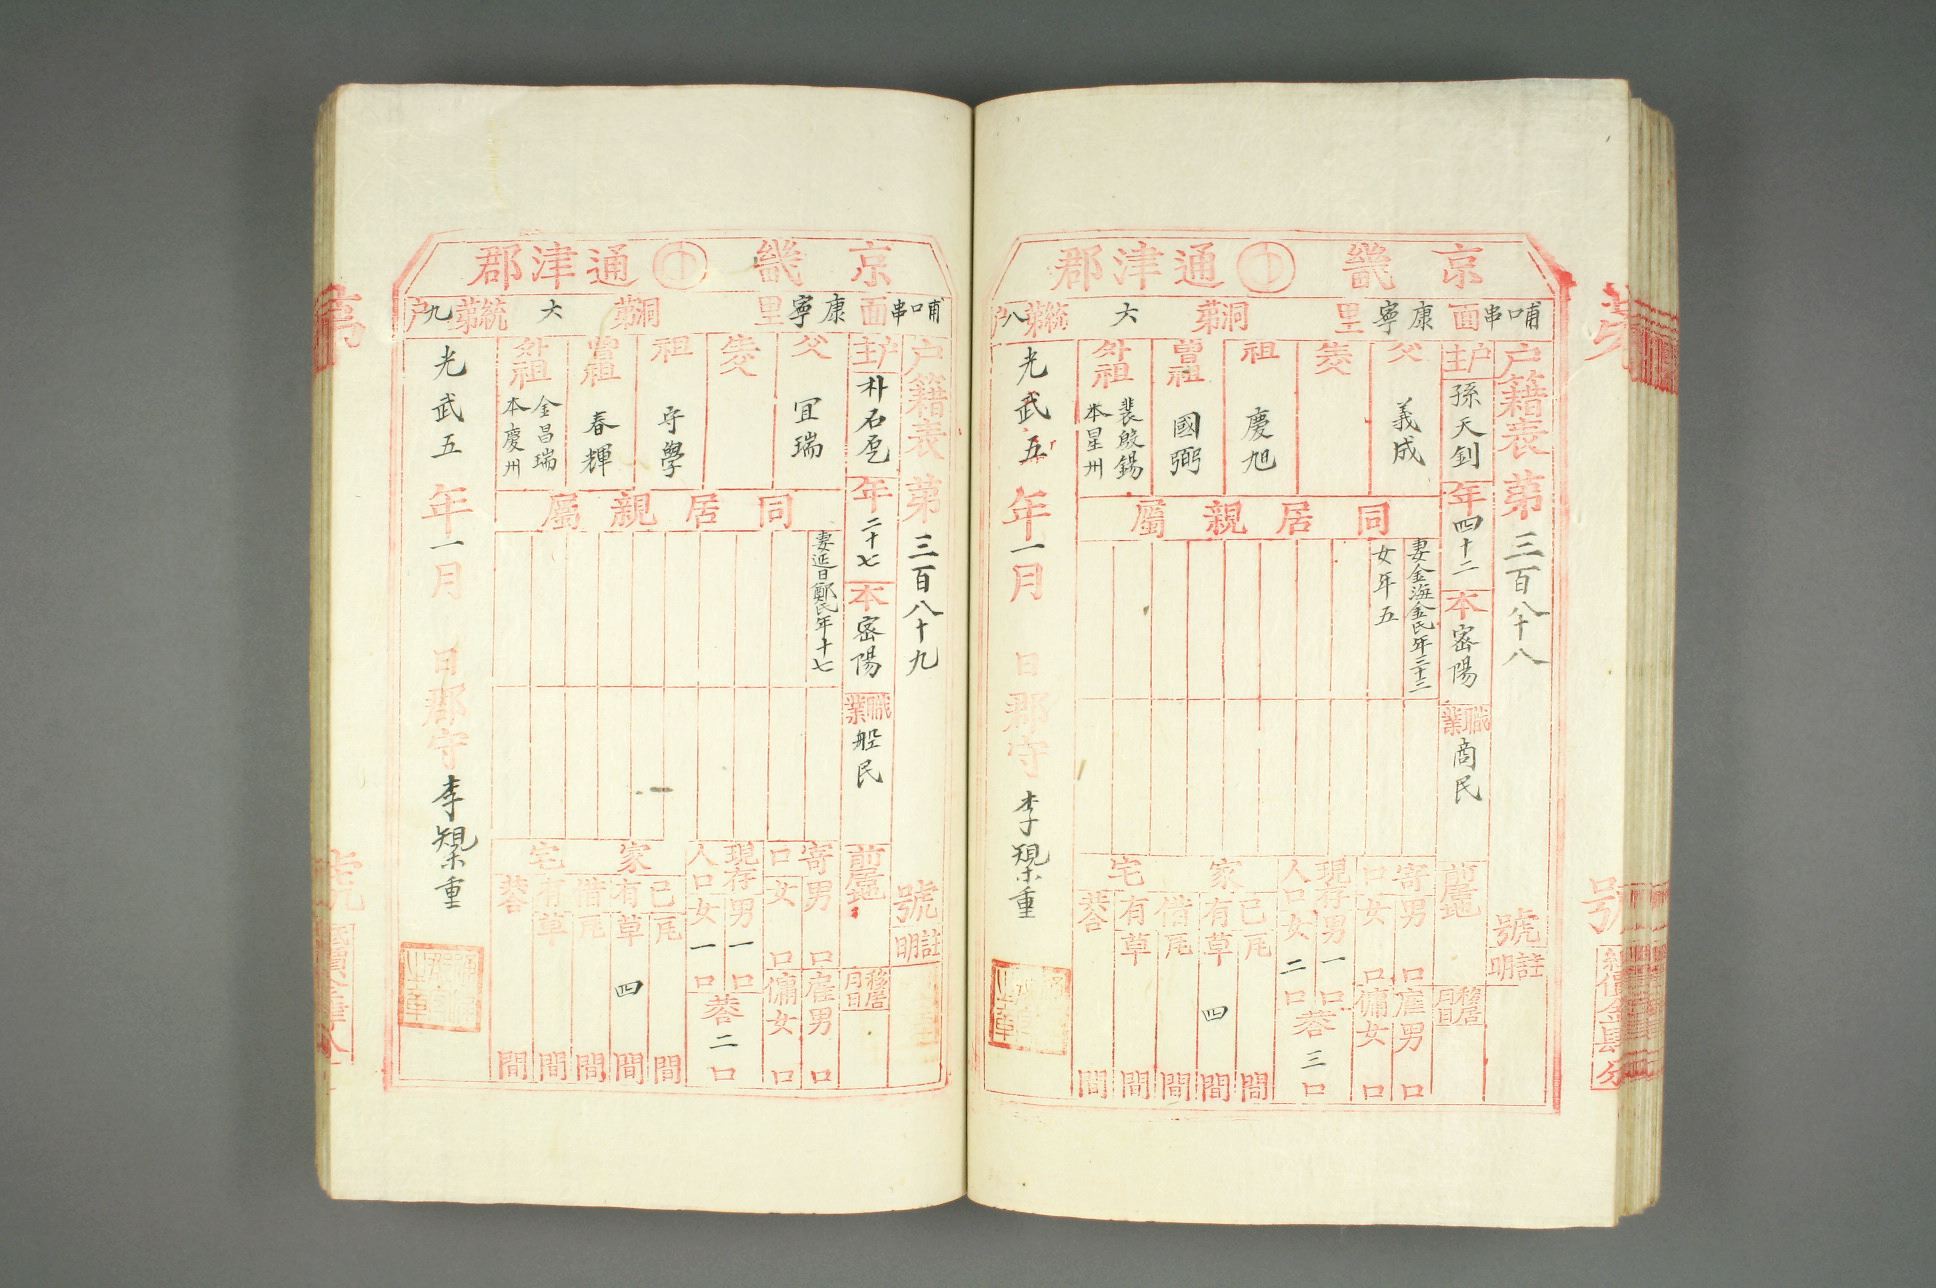 京畿 通津郡
哺口串面 康寧里 洞第 六 統第八户
户籍表第三百八十八 號
註明
户主 孫天釗
年四十二
本 密陽
職業 商民
前居地
移居月日
父 義成
生父
祖 慶旭
曾祖 國弼
外祖 裴殷錫 本星州
同居親屬
妻金海金氏年三十三
女年五
寄口 男 口 女 口
雇男 口
傭女 口
現存人口 男一口 女二口
共合三口
家宅
己有 瓦 間 草四間
借有 瓦 間 草 間
共合 間
光武五年一月 日郡守李 重
京畿 通津郡
哺口串面 康寧里 洞第 六 統第九户
户籍表第三百八十九 號
註明
户主 朴石
年二十七
本 密陽
職業 船民
前居地
移居月日
父 宜瑞
生父
祖 守學
曾祖 春輝
外祖 金昌瑞 本慶州
同居親屬
妻延日鄭氏年十七
寄口 男 口 女 口
雇男 口
傭女 口
現存人口 男一口 女一口
共合二口
家宅
己有 瓦 間 草四間
借有 瓦 間 草 間
共合 間
光武五年一月 日郡守李 重